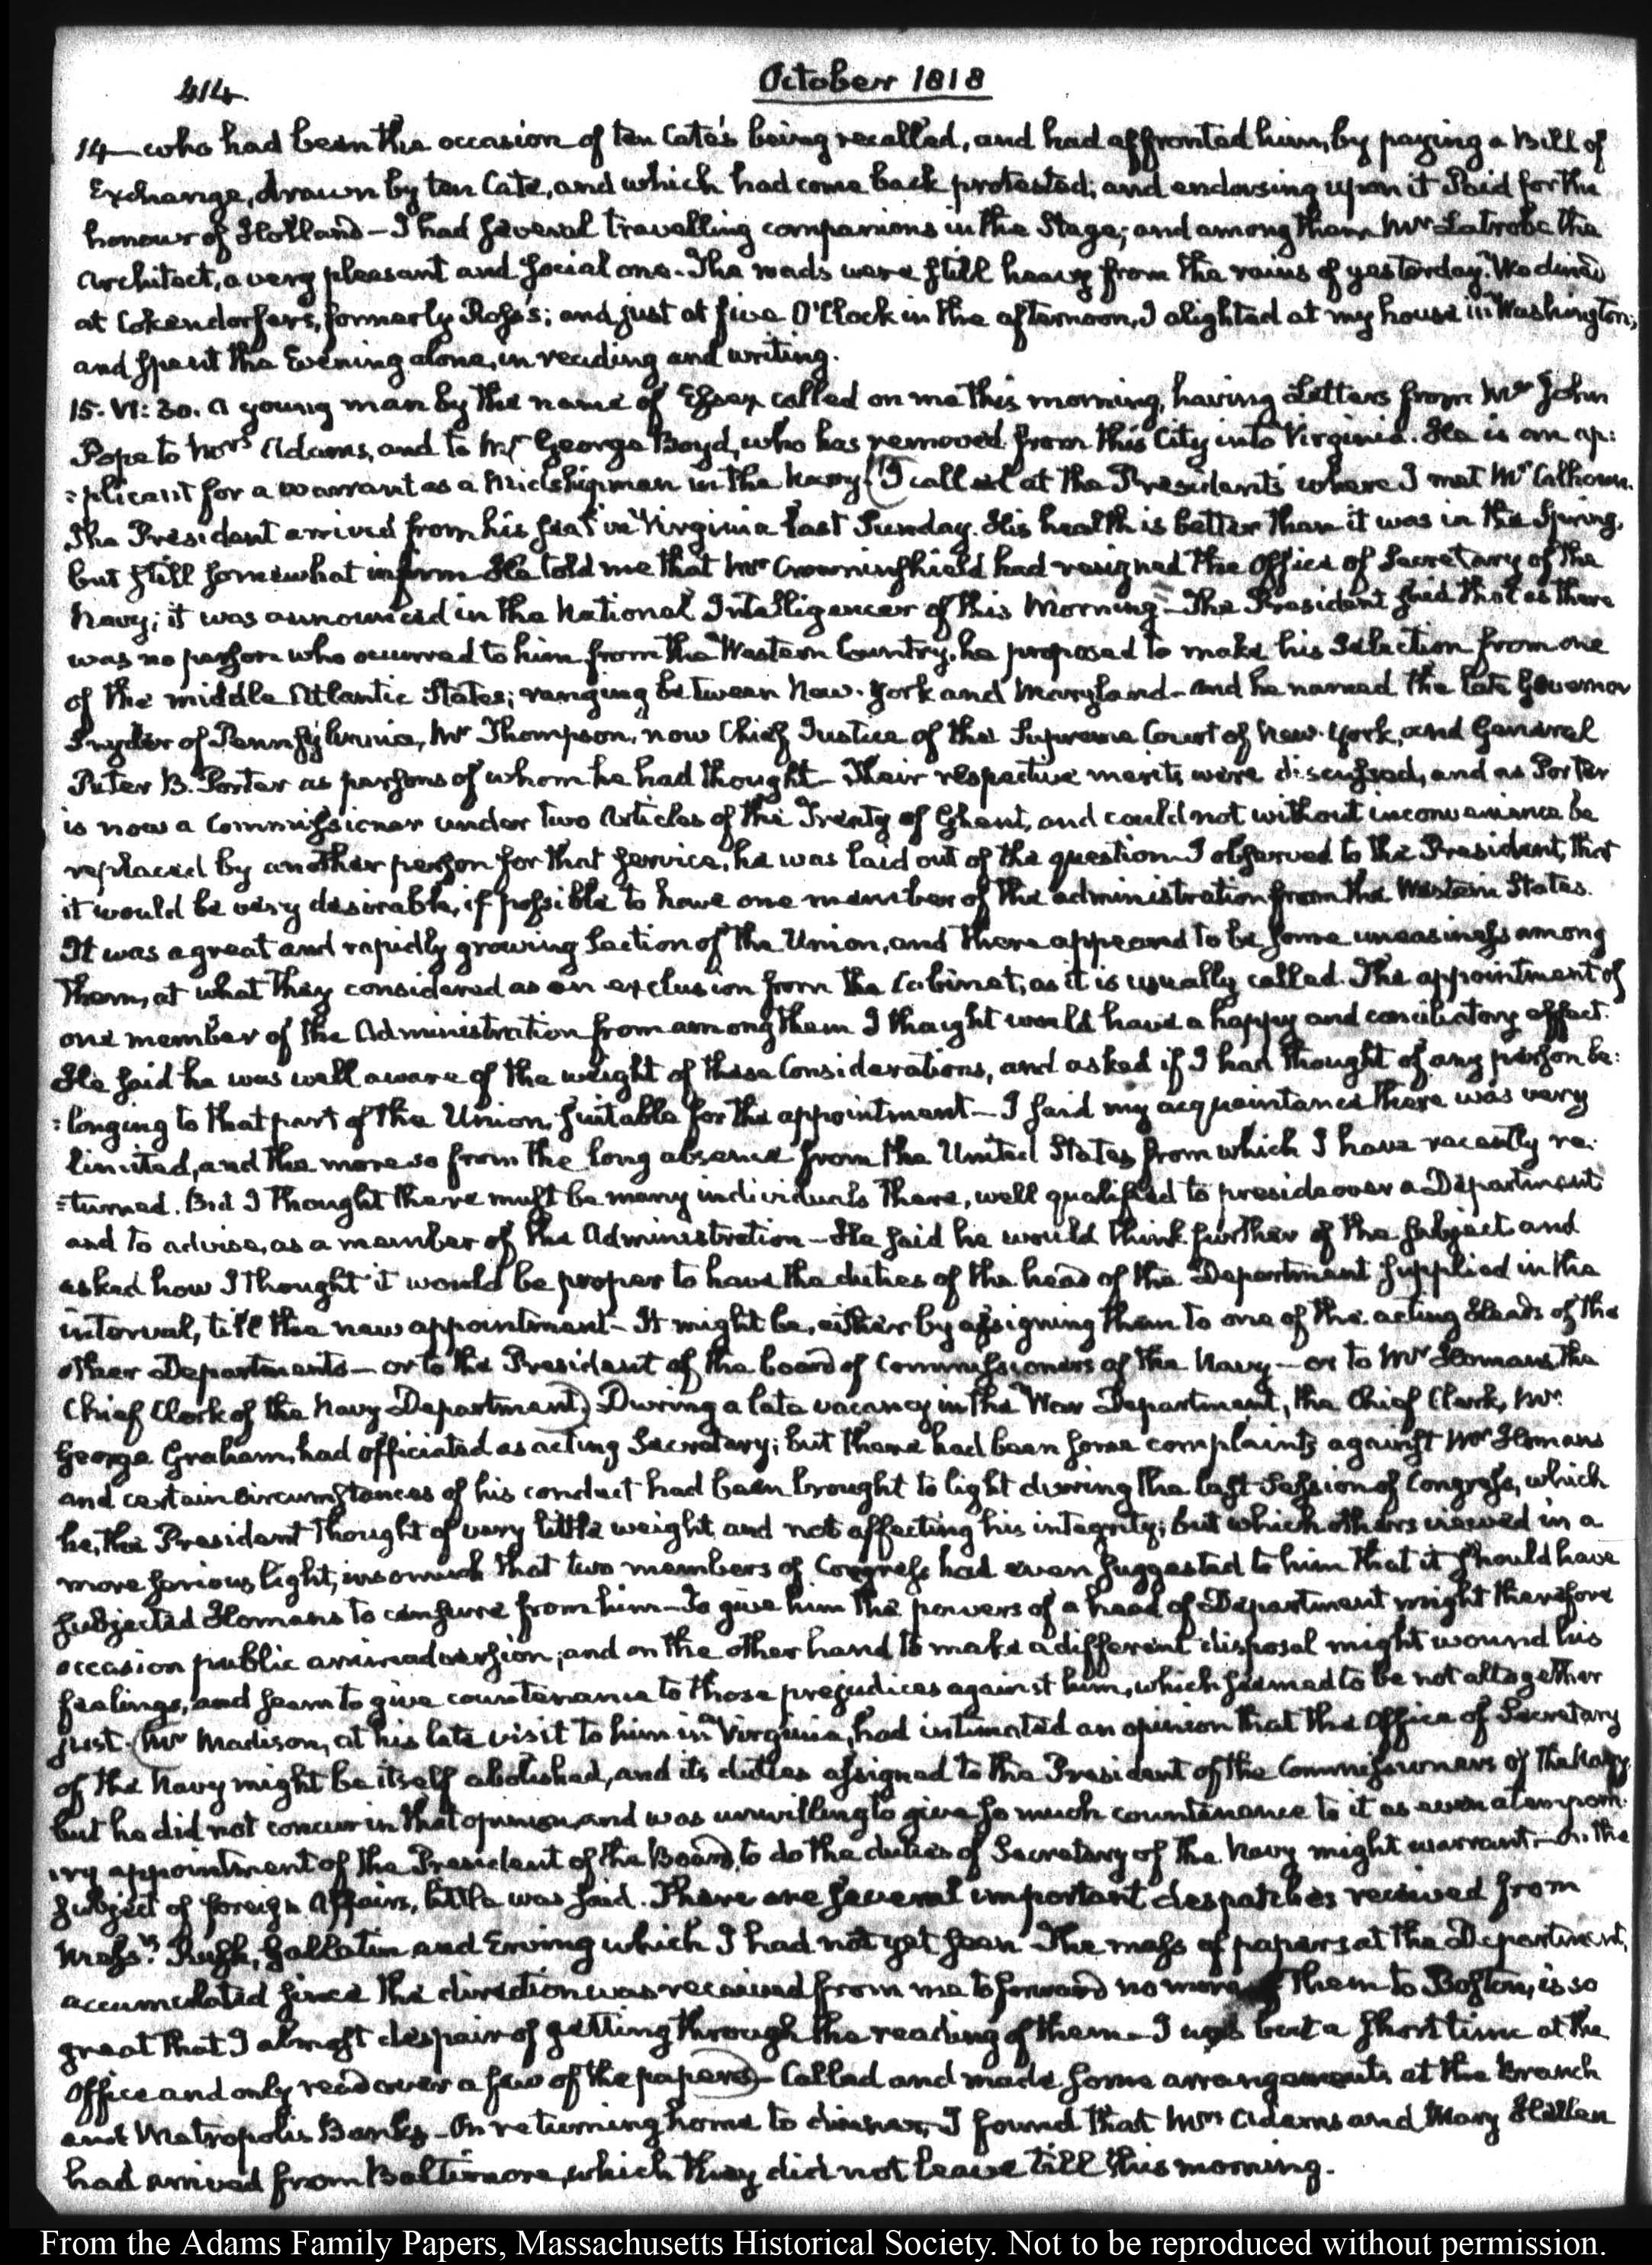 414.
October 1818
14 — who had been the occasion of ten Cate's being recalled, and had affronted him, by paying a Bill of
Exchange, drawn by ten Cate, and which had come back protested; and endorsing upon it Paid for the
honour of Holland — I had several travelling companions in the Stage; and among them Mr Latrobe the
Architect, a very pleasant and social one. The roads were still heavy from the rains of yesterday. We dined
at Cokendorfers, formerly Ross's; and just at five O'Clock in the afternoon, I alighted at my house in Washington;
and spent the Evening alone, in reading and writing.
15. VI: 30. A young man by the name of Essex called on me this morning, having Letters from Mr John
Pope to Mrs Adams, and to Mr George Boyd, who has removed from this City into Virginia. He is an ap:
:plicant for a warrant as a Midshipman in the Navy. (I called at the President's where I met Mr Calhoun.
The President arrived from his seat in Virginia last Sunday. His health is better than it was in the Spring,
but still somewhat infirm. He told me that Mr Crowninshield had resigned the Office of Secretary of the
Navy; it was announced in the National Intelligencer of this Morning — The President said that as there
was no person who occurred to him from the Western Country, he proposed to make his Selection from one
of the middle Atlantic States; ranging between New-York and Maryland — and he named the late Governor
Snyder of Pennsylvania, Mr Thompson, now Chief Justice of the Supreme Court of New-York, and General
Peter B. Porter as persons of whom he had thought — Their respective merits were discussed, and as Porter
is now a Commissioner under two Articles of the Treaty of Ghent, and could not without inconvenience be
replaced by another person for that service, he was laid out of the question — I observed to the President, that
it would be very desirable, if possible to have one member of the administration from the Western States.
It was a great and rapidly growing Section of the Union, and there appeared to be some uneasiness among
them, at what they considered as an exclusion from the Cabinet, as it is usually called. The appointment of
one member of the Administration from among them I thought would have a happy and conciliatory effect.
He said he was well aware of the weight of these Considerations, and asked if I had thought of any person be:
:longing to that part of the Union, suitable for the appointment — I said my acquaintance there was very
limited, and the more so from the long absence from the United States from which I have recently re:
:turned. But I thought there must be many individuals there, well qualified to preside over a Department
and to advise, as a member of the Administration — He said he would think further of the subject and
asked how I thought it would be proper to have the duties of the head of the Department supplied in the
interval, till the new appointment — It might be, either by assigning them to one of the acting Heads of the
other Departments — or to the President of the board of Commissioners of the Navy — or to Mr Homans, the
Chief Clerk of the Navy Department.) During a late vacancy in the War Department, the Chief Clerk, Mr
George Graham, had officiated as acting Secretary; but there had been some complaints against Mr Homans
and certain circumstances of his conduct had been brought to light during the last Session of Congress, which
he, the President thought of very little weight, and not affecting his integrity; but which others viewed in a
more serious light; insomuch that two members of Congress had even suggested to him that it should have
subjected Homans to censure from him — To give him the powers of a head of Department might therefore
occasion public animadversion; and on the other hand to make a different disposal might wound his
feelings, and seem to give countenance to those prejudices against him, which seemed to be not altogether
just. (Mr Madison, at his late visit to him in Virginia, had intimated an opinion that the Office of Secretary
of the Navy might be itself abolished, and its duties assigned to the President of the Commissioners of the Navy.
but he did not concur in that opinion, and was unwilling to give so much countenance to it as even a tempor:
ary appointment of the President of the Board, to do the duties of Secretary of the Navy might warrant. — On the
subject of foreign Affairs, little was said. There are several important despatches received from
Messrs Rush, Gallatin and Erving which I had not yet seen. The mass of papers at the Department,
accumulated since the direction was received from me to forward no more of them to Boston, is so
great that I almost despair of getting through the reading of them — I was but a short time at the
Office and only read over a few of the papers) — Called and made some arrangements at the Branch
and Metropolis Banks — On returning home to dinner, I found that Mrs Adams and Mary Hellen
had arrived from Baltimore, which they did not leave till this morning.
From the Adams Family Papers, Massachusetts Historical Society. Not to be reproduced without permission.